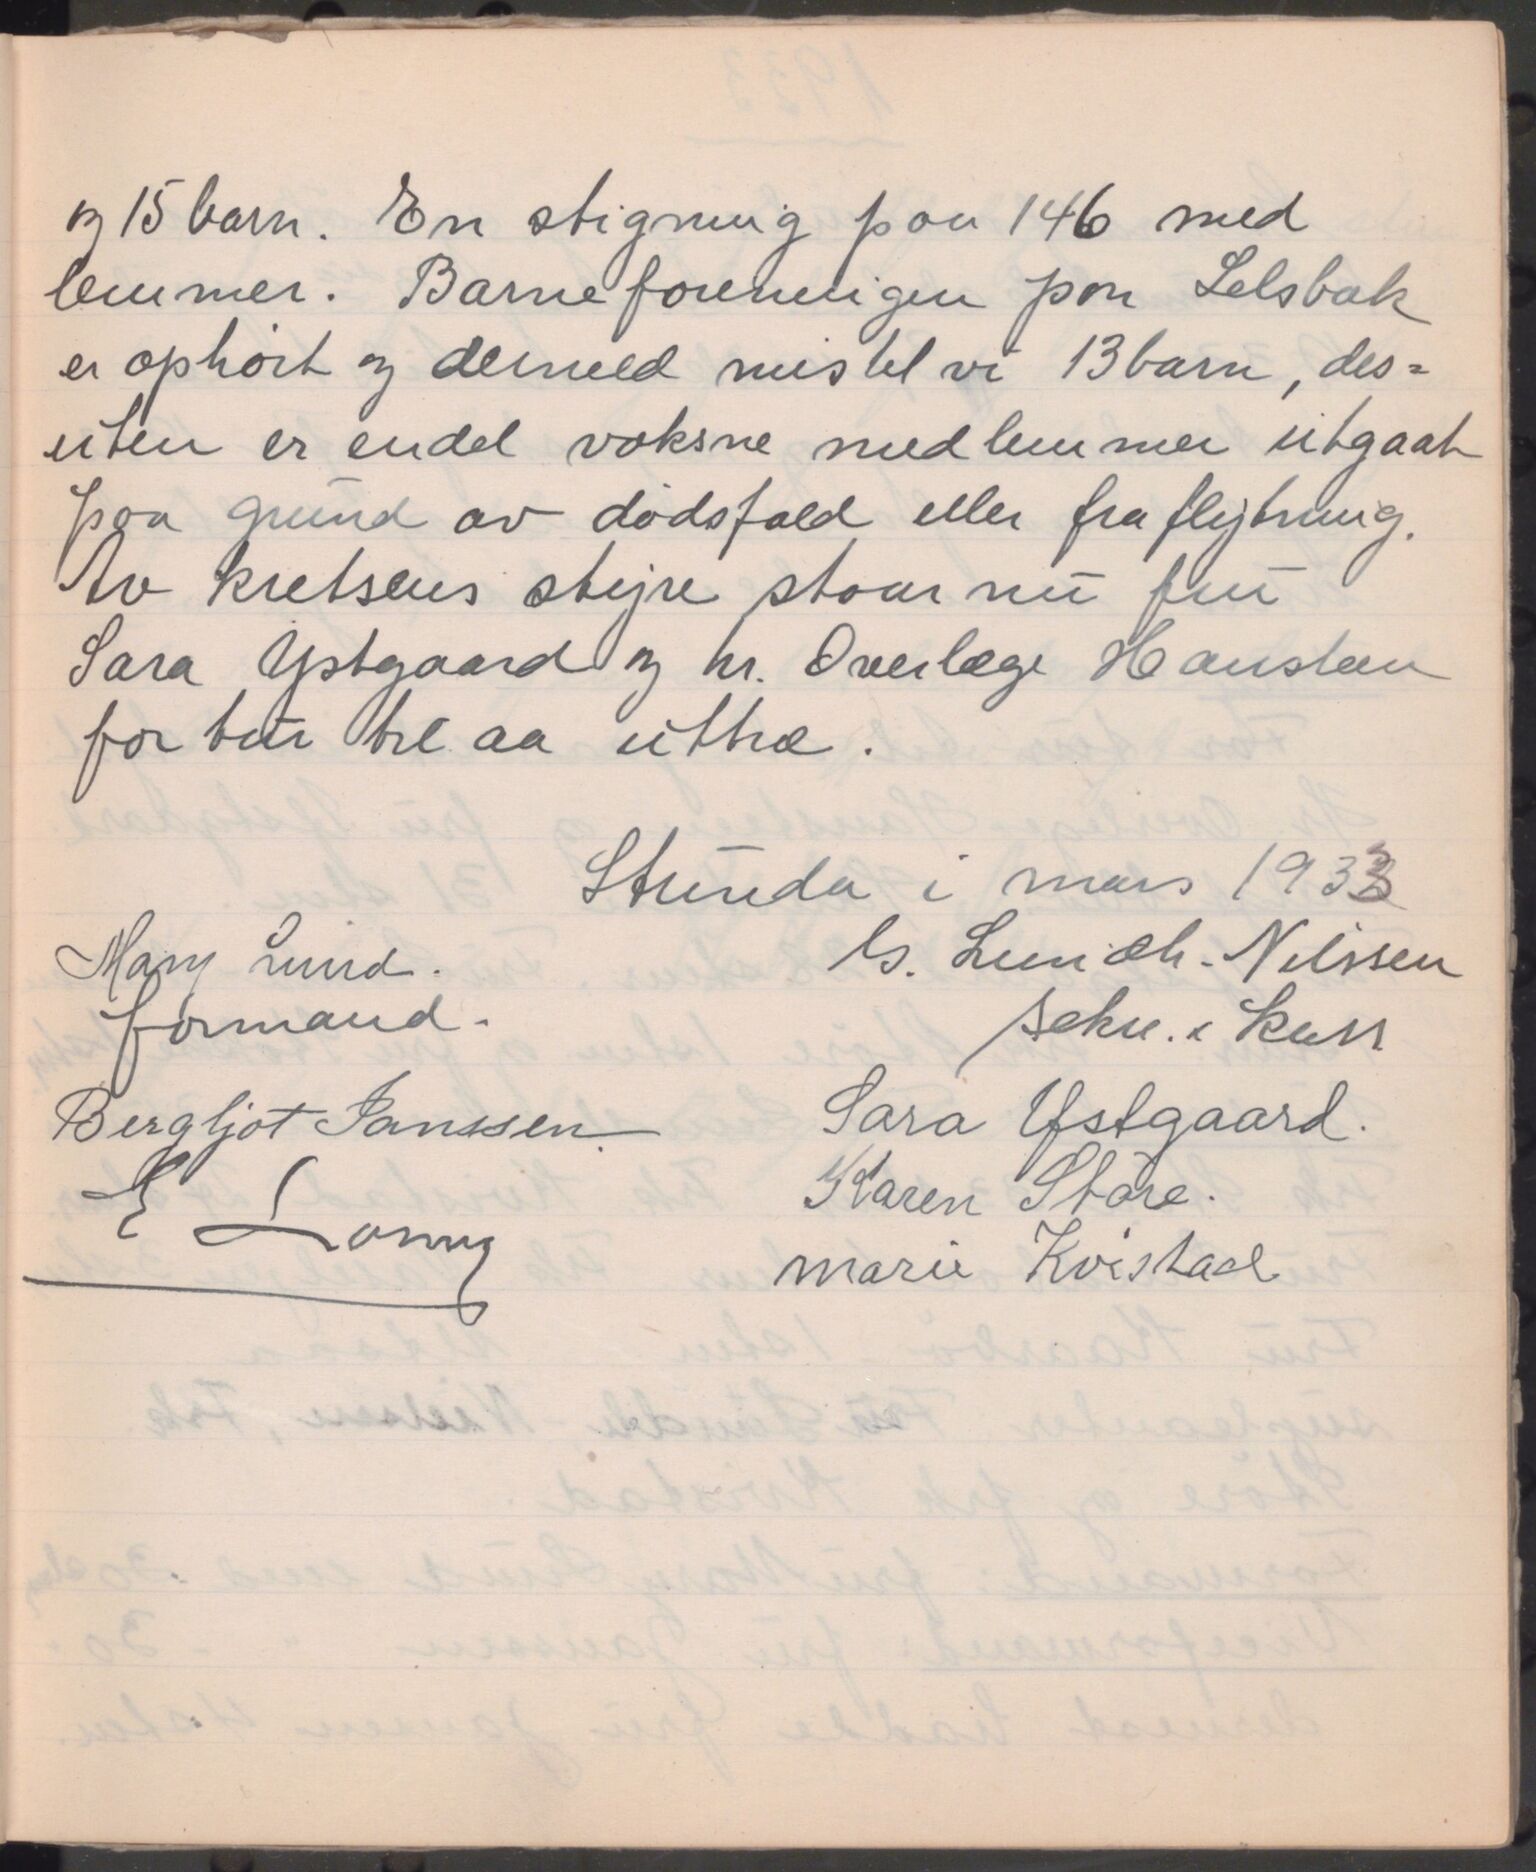 og 15 barn. En stigning paa 146 med
lemmer. Barneforeningen paa Selsbak
er ophørt og dermed mistet vi 13 barn, des=
uten er endel voksne medlemmer utgaat
paa grund av dødsfald eller fraflytning.
Av kretsens styre staar nu fru
Sara Ystgaard og hr. Overlæge Hansteen
for tur til aa uttræ.
Strinda i mars 1933
Mary Lund.
formand.
G. Lundh-Nilssen
sekr. & kass
Bergljot Janssen.
Sara Ystgaard.
Karen Støre.
Marie Kvistad